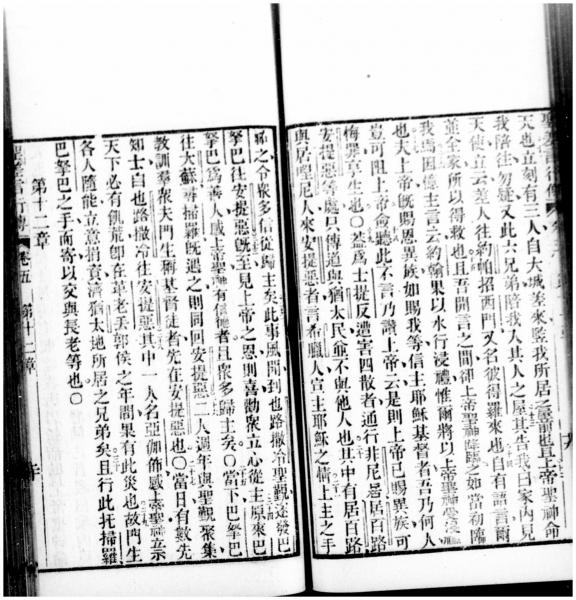 天也立刻有三人自大城差來監我所居之臺前也且上帝聖神命
我陪往勿疑又此六兄弟陪我入其人之屋其告我曰家內見
天使立云差人往約帕招西門又名彼得羅來也自有語言爾
並全家所以得救也且吾開言之間卻上帝聖神降臨之如當初臨
我焉因憶主言云約翰果以水行浸禮惟爾將以上帝聖神受
也夫上帝既賜恩異族如賜我等信主耶穌基督者吾乃何人
豈可阻上帝命聽此不言乃讚上帝云是則上帝已賜異族可
悔罪享生也〇蓋爲士提反遭害四散者通行非尼 居百路
安提惡等處只傳道與猶太民並不與他人也其中有居百路
與居 尼人來安提惡者言希臘人宣主耶穌之情上主之手
之令眾多信從歸主矣此事風聞到也路撒冷聖觀遂發巴
拏巴往安提惡既至見上帝之恩則喜勸眾立心從主原來巴
拏巴爲善人感上帝聖神有信德者且眾多歸主矣〇當下巴拏巴
往大蘇尋掃羅既遇之則同回安提惡二人週年與聖觀聚集
教訓羣眾夫門生稱基督徒者先在安提惡也〇當日有數先
知士自也路撒冷往安提惡其中一人名亞伽佈感上帝聖神立示
天下必有飢荒卽在革老丟郭侯之年間果有此災也故門生
各人隨能立意捐資濟猶太地所居之兄弟矣且行此托掃羅
巴拏巴之手而寄以交與長老等也〇
第十二章
聖差言行傳 卷五 第十二章